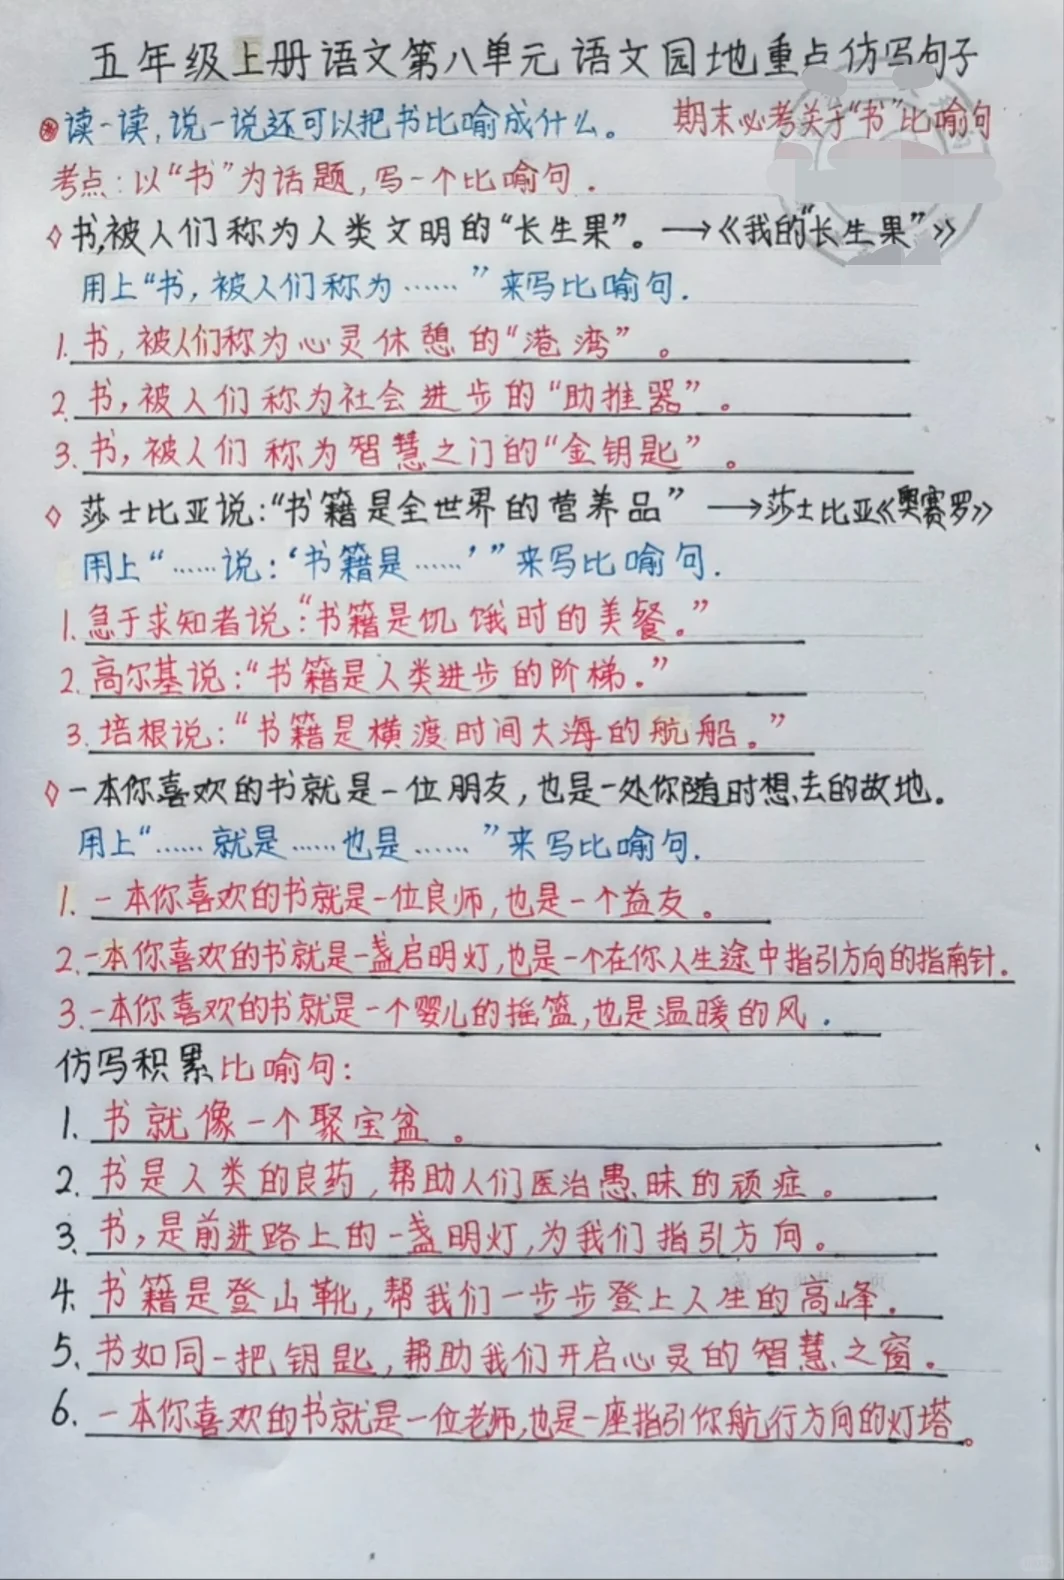 五年级上册语文第八单元语文园地重点仿写句子
读一读,说一说还可以把书比喻成什么。 期末必考关于“书”比喻句
考点:以“书”为话题,写一个比喻句.
◇书,被人们称为人类文明的“长生果”。→《我的“长生果”》
用上“书,被人们称为……”来写比喻句.
1.书,被人们称为心灵休憩的“港湾”。
2.书,被人们称为社会进步的“助推器”。
3.书,被人们称为智慧之门的“金钥匙”。
◇莎士比亚说:“书籍是全世界的营养品”→莎士比亚《奥赛罗》
用上“……说:‘书籍是……’”来写比喻句.
1.急于求知者说:“书籍是饥饿时的美餐。”
2.高尔基说:“书籍是人类进步的阶梯.”
3.培根说:“书籍是横渡时间大海的航船。”
◇一本你喜欢的书就是一位朋友,也是一处你随时想去的故地。
用上“……就是……也是……”来写比喻句.
1.一本你喜欢的书就是一位良师,也是一个益友。
2.一本你喜欢的书就是一盏启明灯,也是一个在你人生途中指引方向的指南针.
3.一本你喜欢的书就是一个婴儿的摇篮,也是温暖的风.
仿写积累比喻句:
1.书就像一个聚宝盆。
2.书是人类的良药,帮助人们医治愚昧的顽症。
3.书,是前进路上的一盏明灯,为我们指引方向。
4.书籍是登山靴,帮我们一步步登上人生的高峰.
5.书如同一把钥匙,帮助我们开启心灵的智慧之窗。
6.一本你喜欢的书就是一位老师,也是一座指引你航行方向的灯塔。